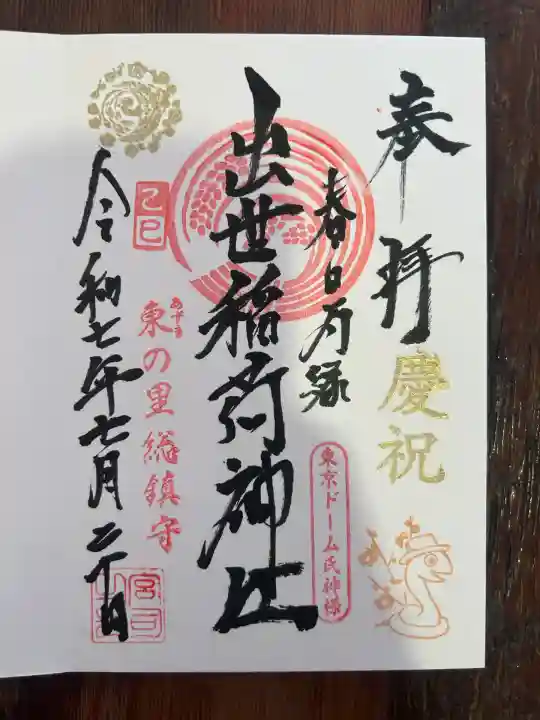 奉拝
慶祝
春日局縁
東京ドーム氏神様
出世稲荷神社
あずま
東の里総鎮守
乙巳
令和七年七月二十日